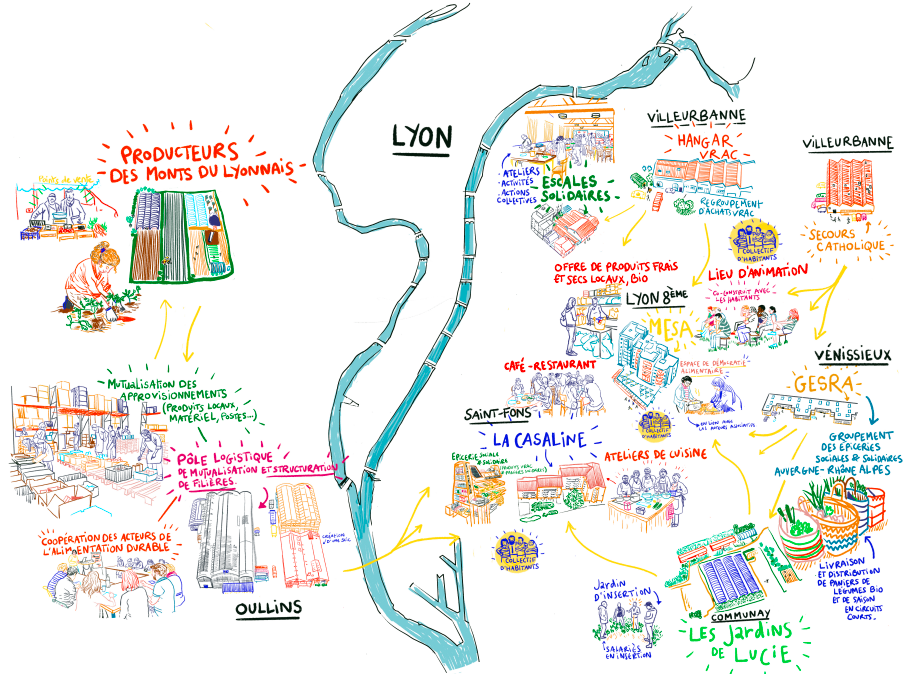 LYON
PRODUCTEURS
DES MONTS DU LYONNAIS
Points de vente
MUTUALISATION DES
APPROVISIONNEMENTS
(PRODUITS LOCAUX,
MATÉRIEL, POSTES...)
PÔLE LOGISTIQUE
DE MUTUALISATION ET STRUCTURATION
DE FILIÈRES.
COOPÉRATION DES ACTEURS DE
L'ALIMENTATION DURABLE
CRÉATION
D'UNE SCIC
OULLINS
VILLEURBANNE
HANGAR
VRAC
REGROUPEMENT
D'ACHAT VRAC
- ATELIERS
- ACTIVITÉS
- ACTIONS
COLLECTIVES
ESCALES
SOLIDAIRES
VILLEURBANNE
SECOURS
CATHOLIQUE
COLLECTIF
D'HABITANTS
OFFRE DE PRODUITS FRAIS
ET SECS LOCAUX, BIO
LIEU D'ANIMATION
CO-CONSTRUIT AVEC
LES HABITANTS
LYON 8ÈME
MESA
ESPACE DE DÉMOCRATIE
ALIMENTAIRE
EN LIEN AVEC
CAFÉ-RESTAURANT
COLLECTIF
D'HABITANTS
VÉNISSIEUX
GESRA
GROUPEMENT
DES ÉPICERIES
SOCIALES & SOLIDAIRES
AUVERGNE-RHÔNE ALPES
SAINT-FONS
LA CASALINE
ÉPICERIE SOCIALE
& SOLIDAIRE
PRODUITS VRAC
ATELIERS DE CUISINE
COLLECTIF
D'HABITANTS
JARDIN
D'INSERTION
SALARIÉS
EN INSERTION
COMMUNAY
LES JARDINS
DE LUCIE
LIVRAISON
ET DISTRIBUTION
DE PANIERS DE
LÉGUMES BIO
ET DE SAISON
EN CIRCUITS
COURTS.